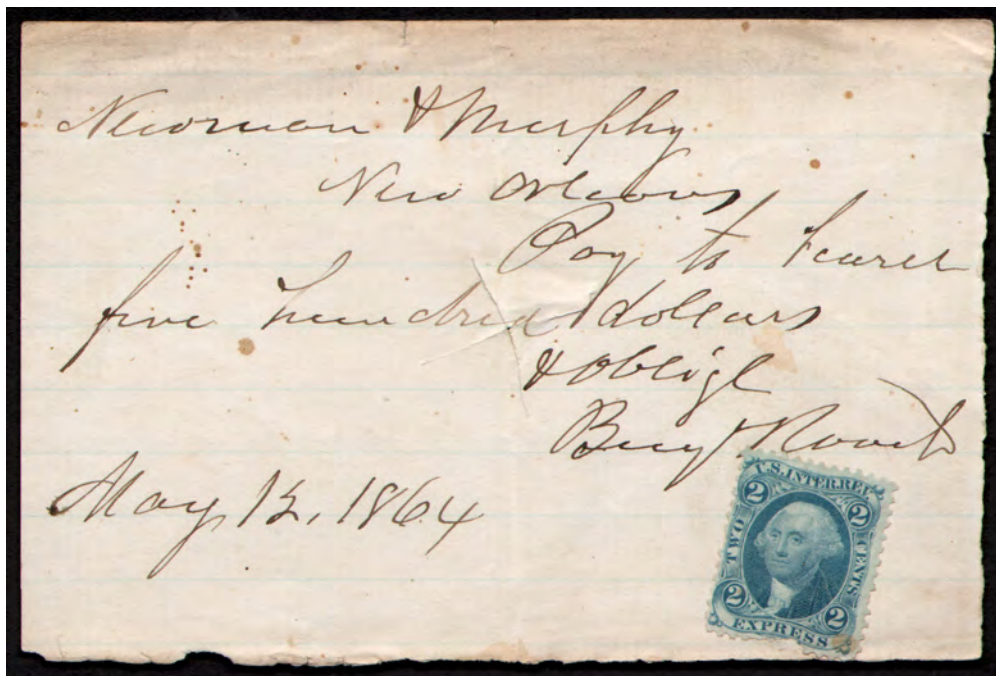 Newman & Murphy
New Orleans
Pay to
five hundred dollars
& Oblige
Benj Roach
May 13, 1864
U.S. INTER. REV.
2 2
TWO CENTS
2 2
EXPRESS